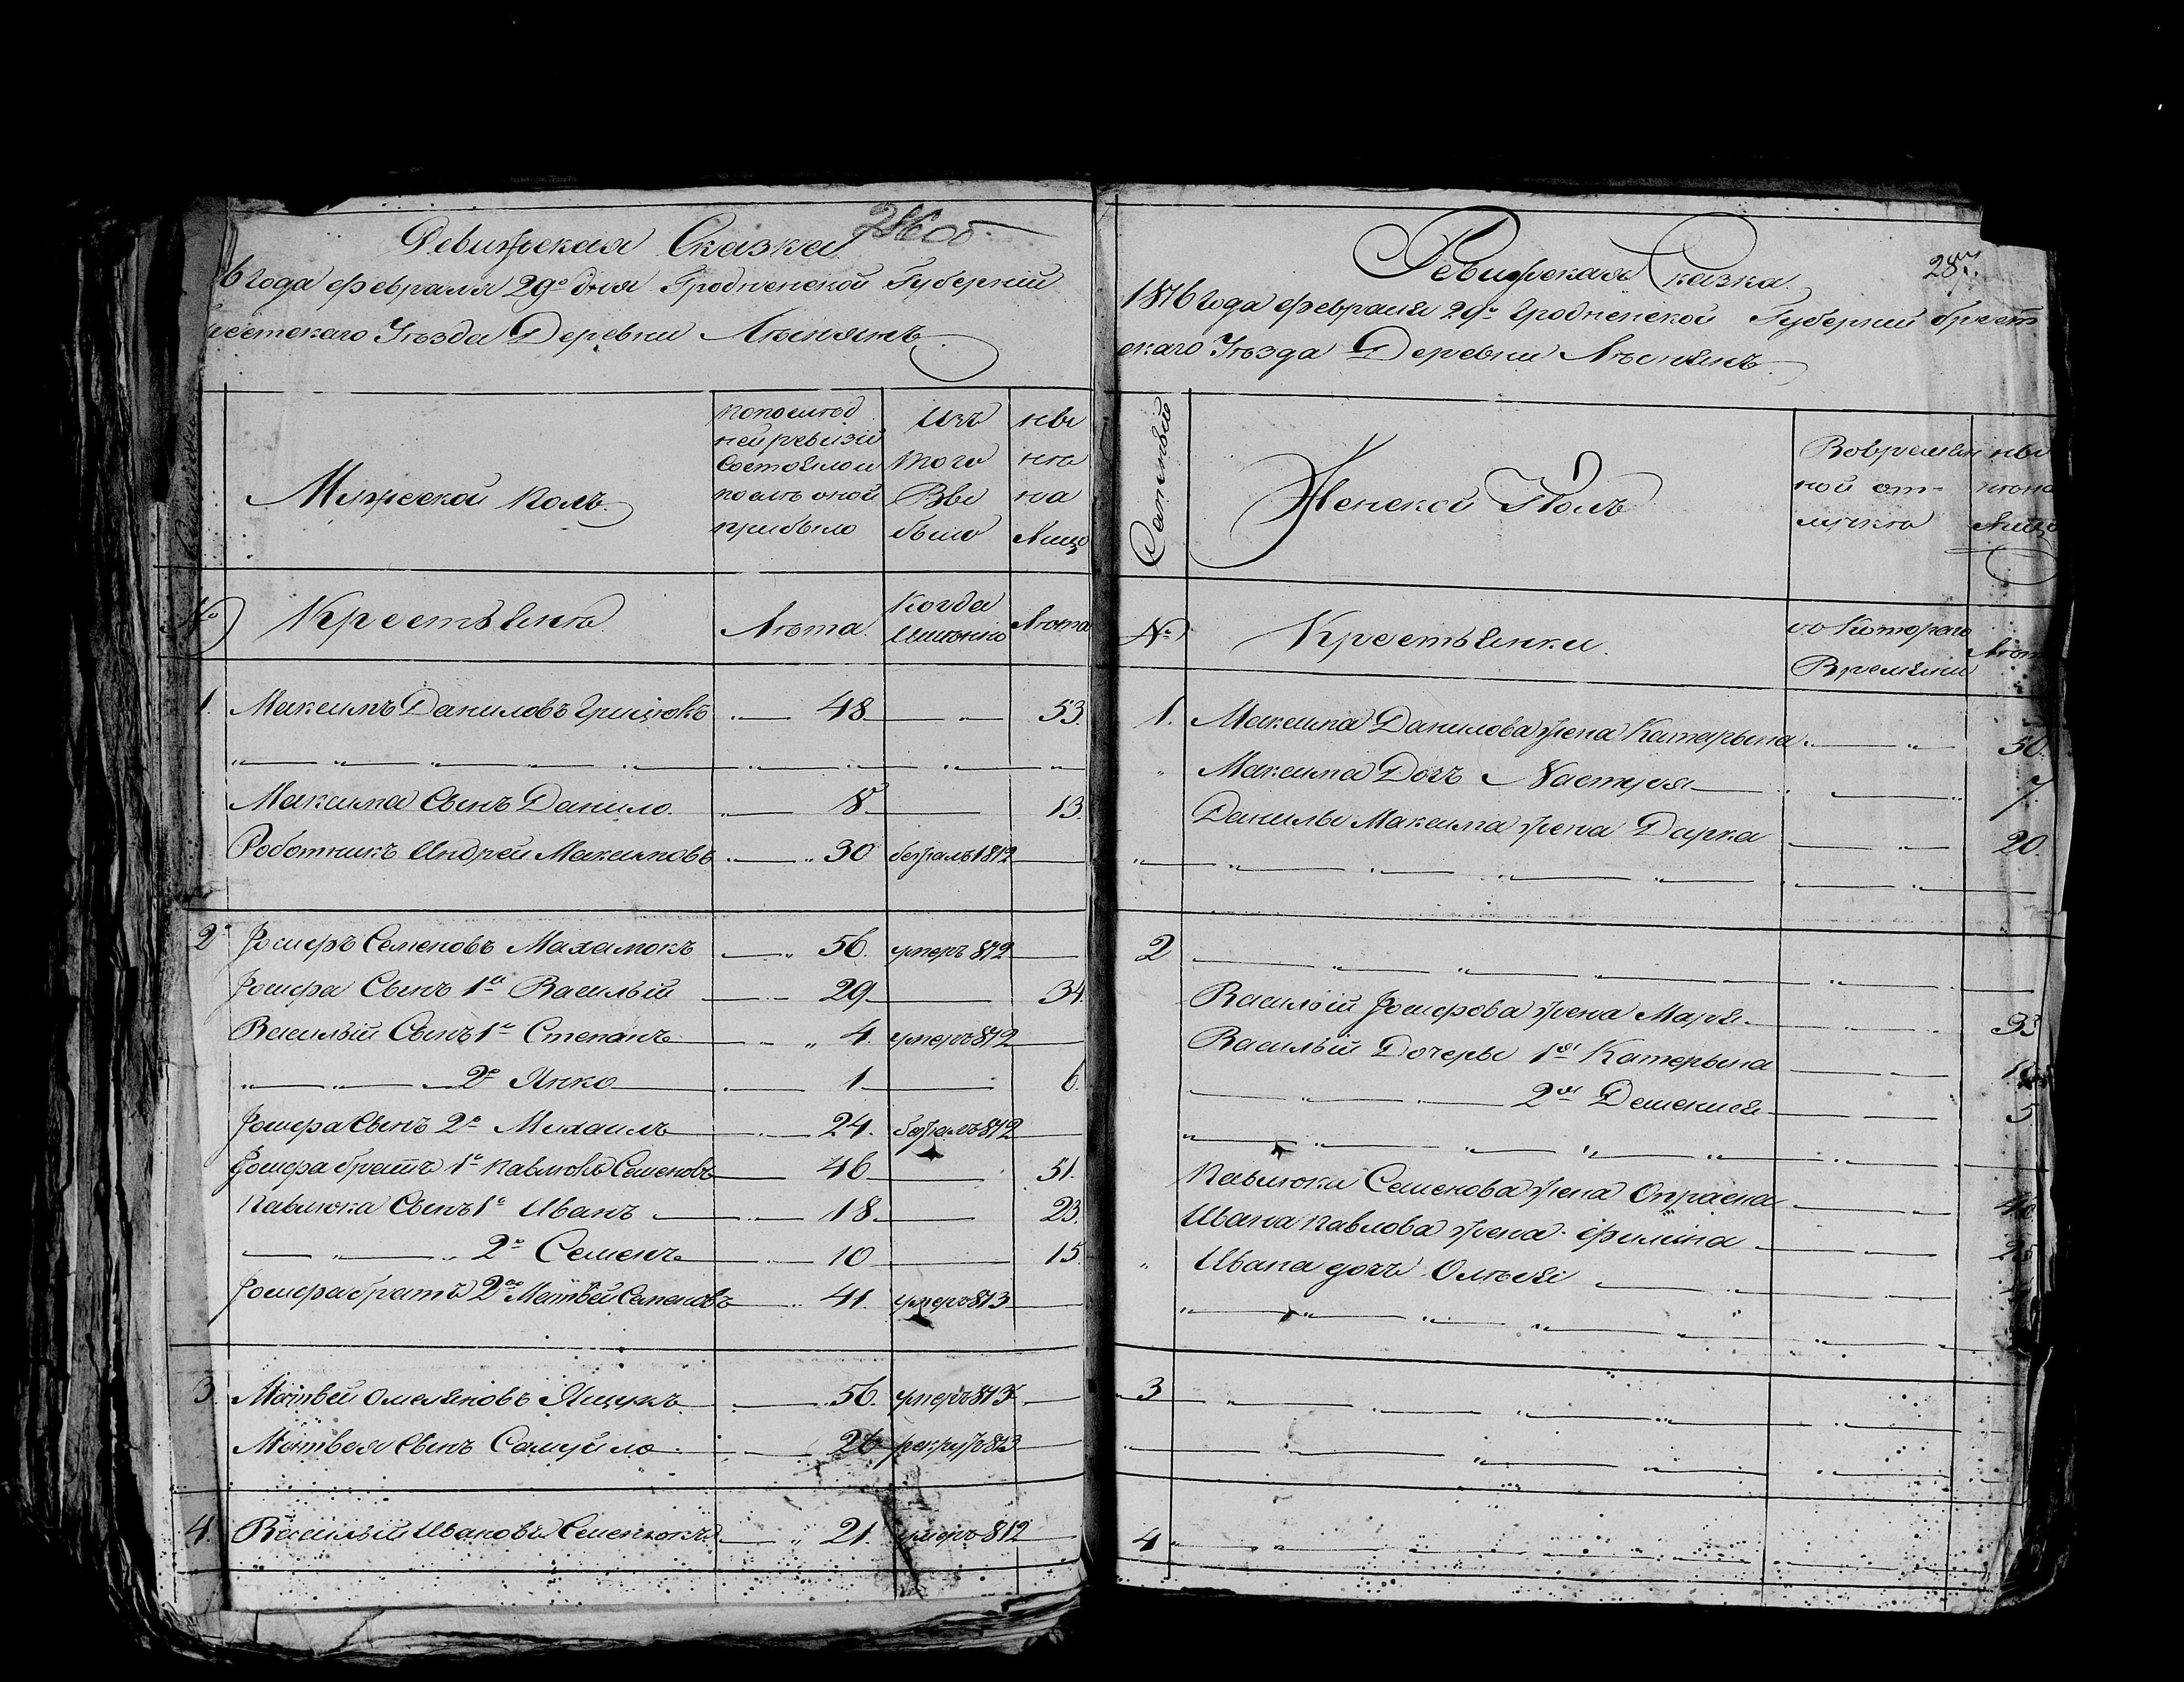 Ревизская Сказка
6 года февраля 29º дня Гродненской Губерній
Уезда Деревни Лѣснянъ
Мужеской полъ.
по послѣд
ней ревизій
состояло и
послѣ оной
прибыло
Изъ
того
Вы
было
ны
нѣ
на
Лицо
№
Крестьяня
Лѣта.
Когда
именно
Лѣта
1. Максимъ Даниловъ Грицюкъ 48 53.
Максима Сынъ Данило 8 13.
Роботникъ Андрей Максимовъ 30 бежалъ 1812
2. Іосифъ Семеновъ 56. умеръ 812
Іосифа Сынъ 1й Василый 29 34.
Василый Сынъ 1й Степанъ 4. умеръ 812
2й Янко 1 6.
Іосифа Сынъ 2й Михаилъ 24. бежалъ 812
Іосифа братъ 1й Павлюкъ Семеновъ 46 51.
Павлюка Сынъ 1й Иванъ 18 23.
2й Семенъ 10 15.
Іосифа братъ 2й Матвей Семеновъ 41. умеръ 813
3. Матвей Омеляновъ Ящукъ 56. умеръ 813
Матвея Сынъ Самуйло 26 рекрутъ 813
4. Василый Ивановъ Семенюкъ 21. умеръ 812
Ревизская Сказка.
287.
1816 года февраля 29º Гродненской Губерній Брест
скаго Уезда Деревни Лѣснянъ.
Женской Полъ
Во времян
ной от-
лучкѣ
ны
нѣ на
Лицо
№
Крестьянки.
съ Котораго
Времяни
Лѣта
1. Максима Данилова жена Катарына 50.
Максима Дочъ Настуся 7.
Данилы Максима жена Дарка 20.
2
Василый Іосифова жена Марья 33
Василый Дочеры 1я Катерына
2я 5
Павлюка Семенова жена Опрасна
Ивана Павлова жена
Ивана дочъ
3
4